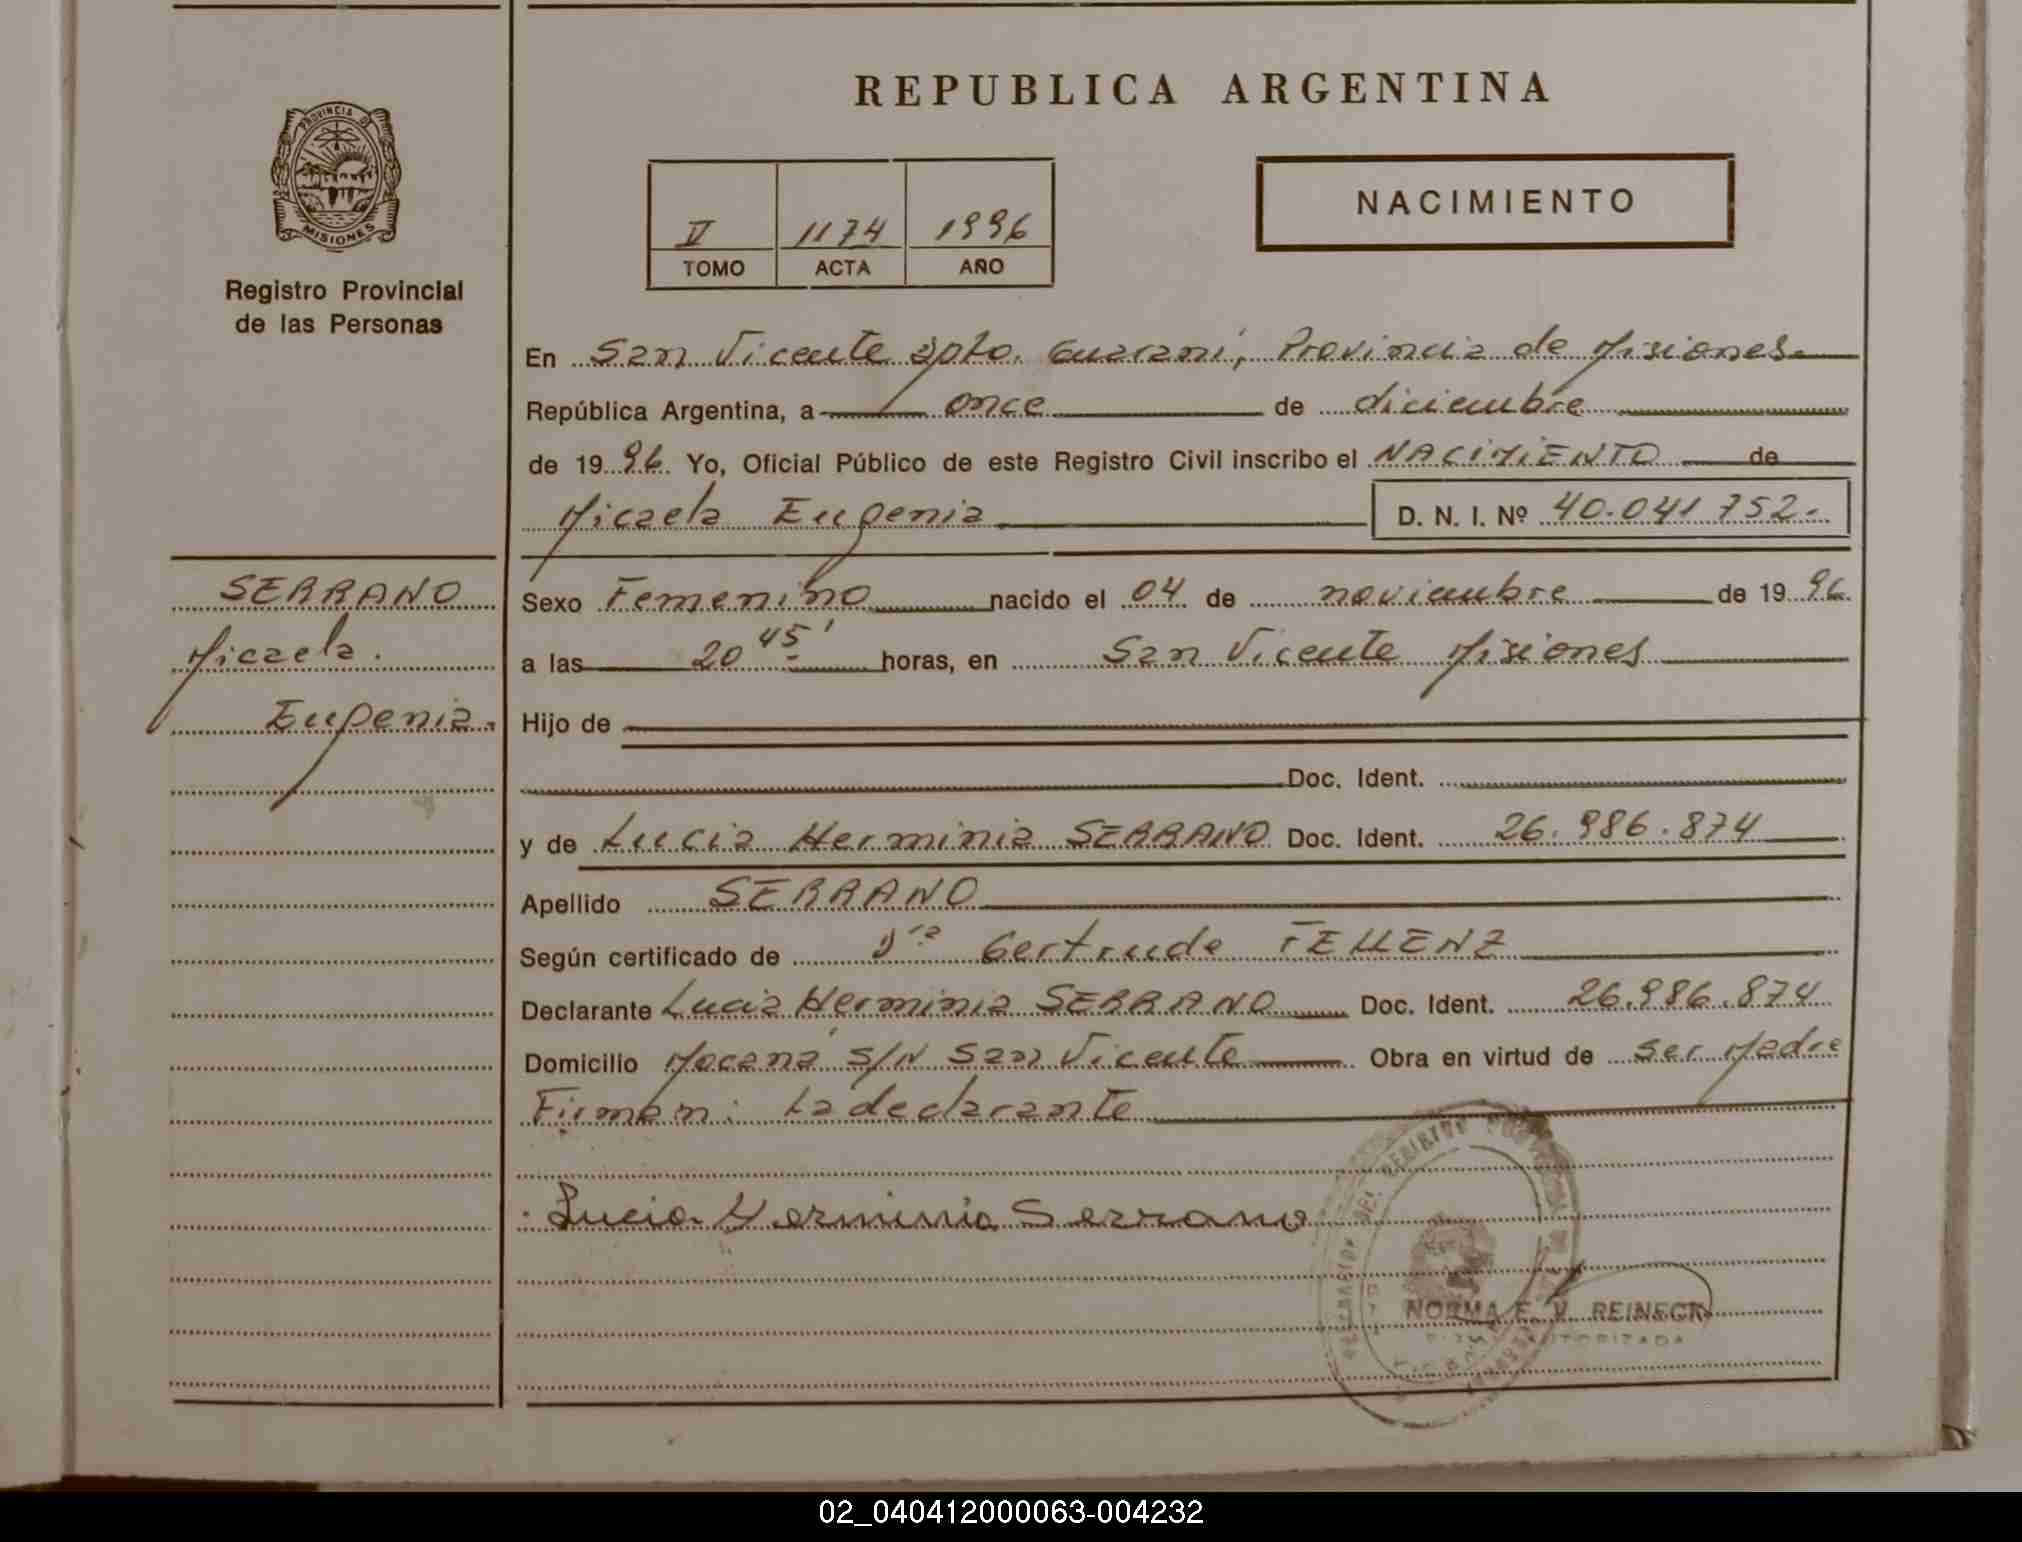 REPUBLICA ARGENTINA
PROVINCIA DE
MISIONES
Registro Provincial
de las Personas
V 1174 1996
TOMO ACTA AÑO
NACIMIENTO
En San Vicente Dpto. Guaraní, Provincia de Misiones
República Argentina, a once de diciembre
de 1996. Yo, Oficial Público de este Registro Civil inscribo el NACIMIENTO de
Micaela Eugenia D. N. I. Nº 40.041.752.-
SERRANO
Micaela.
Eugenia.
Sexo Femenino nacido el 04 de noviembre de 1996.
a las 20 45' horas, en San Vicente Misiones
Hijo de
Doc. Ident.
y de Lucia Herminia SERRANO Doc. Ident. 26.986.874
Apellido SERRANO
Según certificado de Dra Gertrude FELLENZ
Declarante Lucia Herminia SERRANO Doc. Ident. 26.986.874
Domicilio Mocaná s/N San Vicente Obra en virtud de ser Madre
Firman: La declarante
Lucia Herminia Serrano
NORMA E. V. REINECK
FIRMA AUTORIZADA
02_040412000063-004232